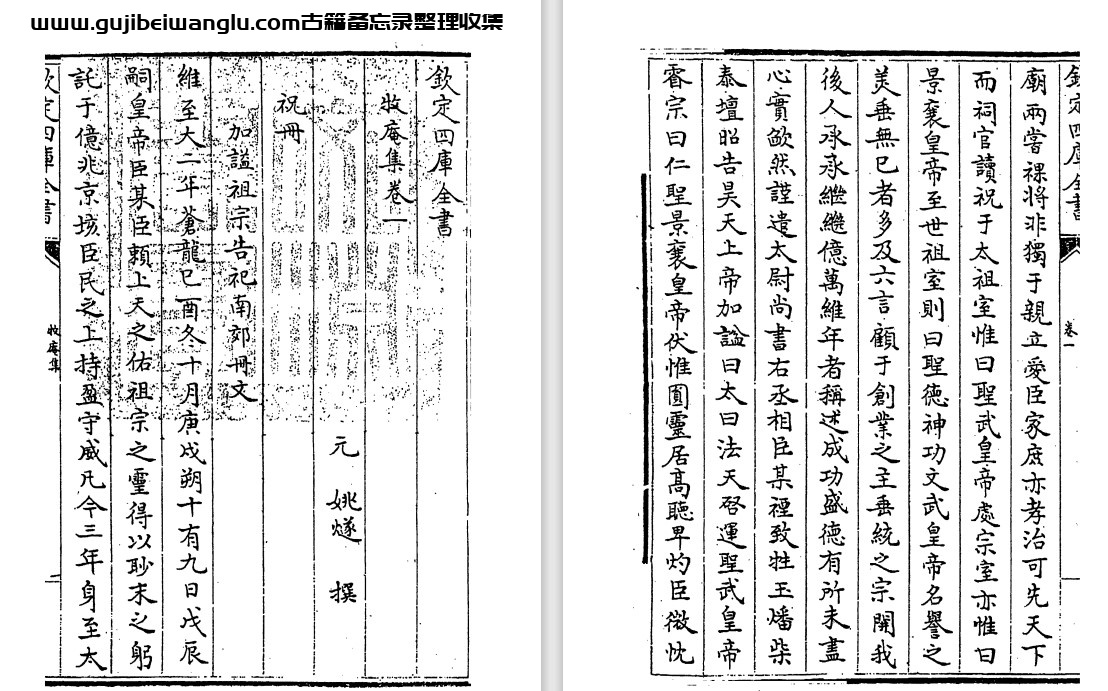 www.gujibeiwanglu.com古籍备忘录整理收集
欽定四庫全書
牧庵集卷一
元 姚燧 撰
祝冊
加謚祖宗告祀南郊冊文
維至大二年蒼龍己酉冬十月庚戌朔十有九日戊辰
嗣皇帝臣某臣賴上天之佑祖宗之靈得以眇末之躬
託于億兆京垓臣民之上持盈守威凡今三年身至太
欽定四庫全書
牧庵集
一
欽定四庫全書
卷一
廟兩嘗祼將非獨于親立愛臣家庶亦孝治可先天下
而祠官讀祝于太祖室惟曰聖武皇帝處宗室亦惟曰
景襄皇帝至世祖室則曰聖德神功文武皇帝名譽之
美垂無已者多及六言顧于創業之主垂統之宗開我
後人承承繼繼億萬維年者稱述成功盛德有所未盡
心實歉然謹遣太尉尚書右丞相臣某禋致牲玉燔柴
泰壇昭告昊天上帝加謚曰太曰法天啓運聖武皇帝
睿宗曰仁聖景襄皇帝伏惟圓靈居高聽卑灼臣微忱